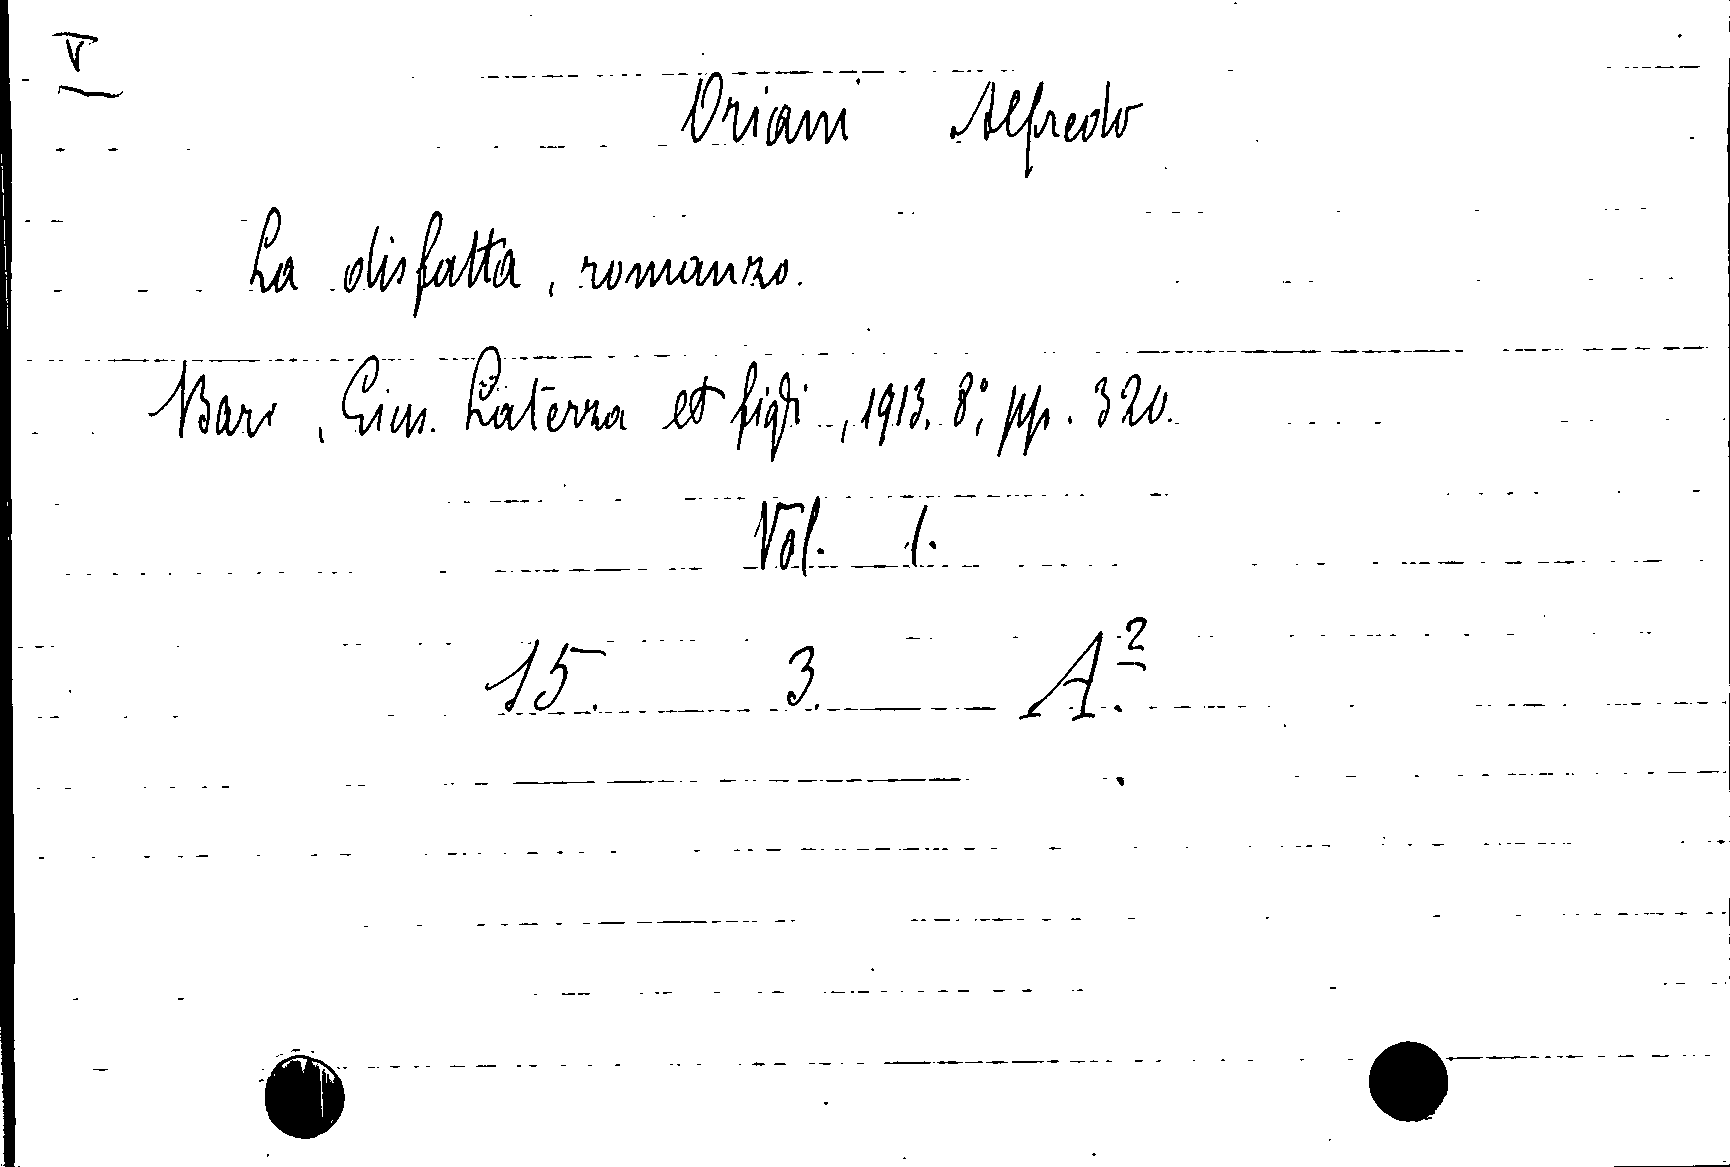 V
Oriani Alfredo
La disfatta, romanzo.
Bari, Gius. Laterza et figli, 1913. 8°, pp. 320.
Vol. 1.
15. 3. A².